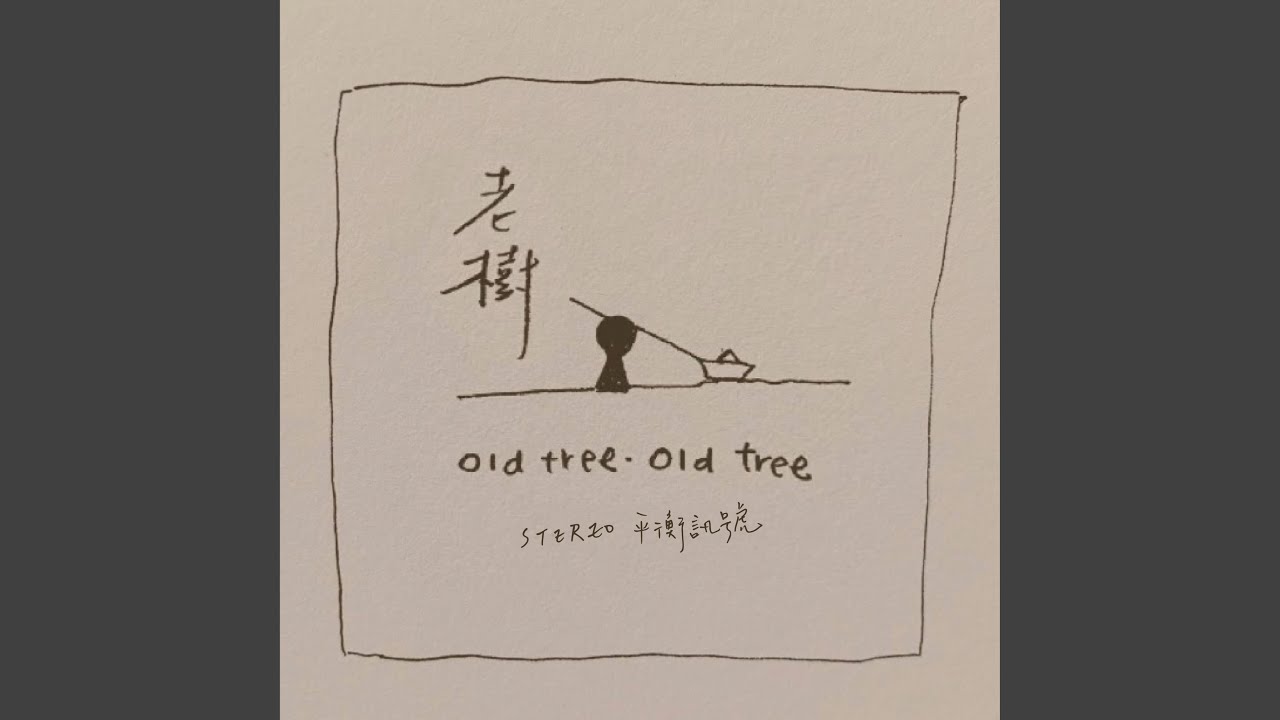 老
樹
old tree. old tree
STEREO 平衡訊號